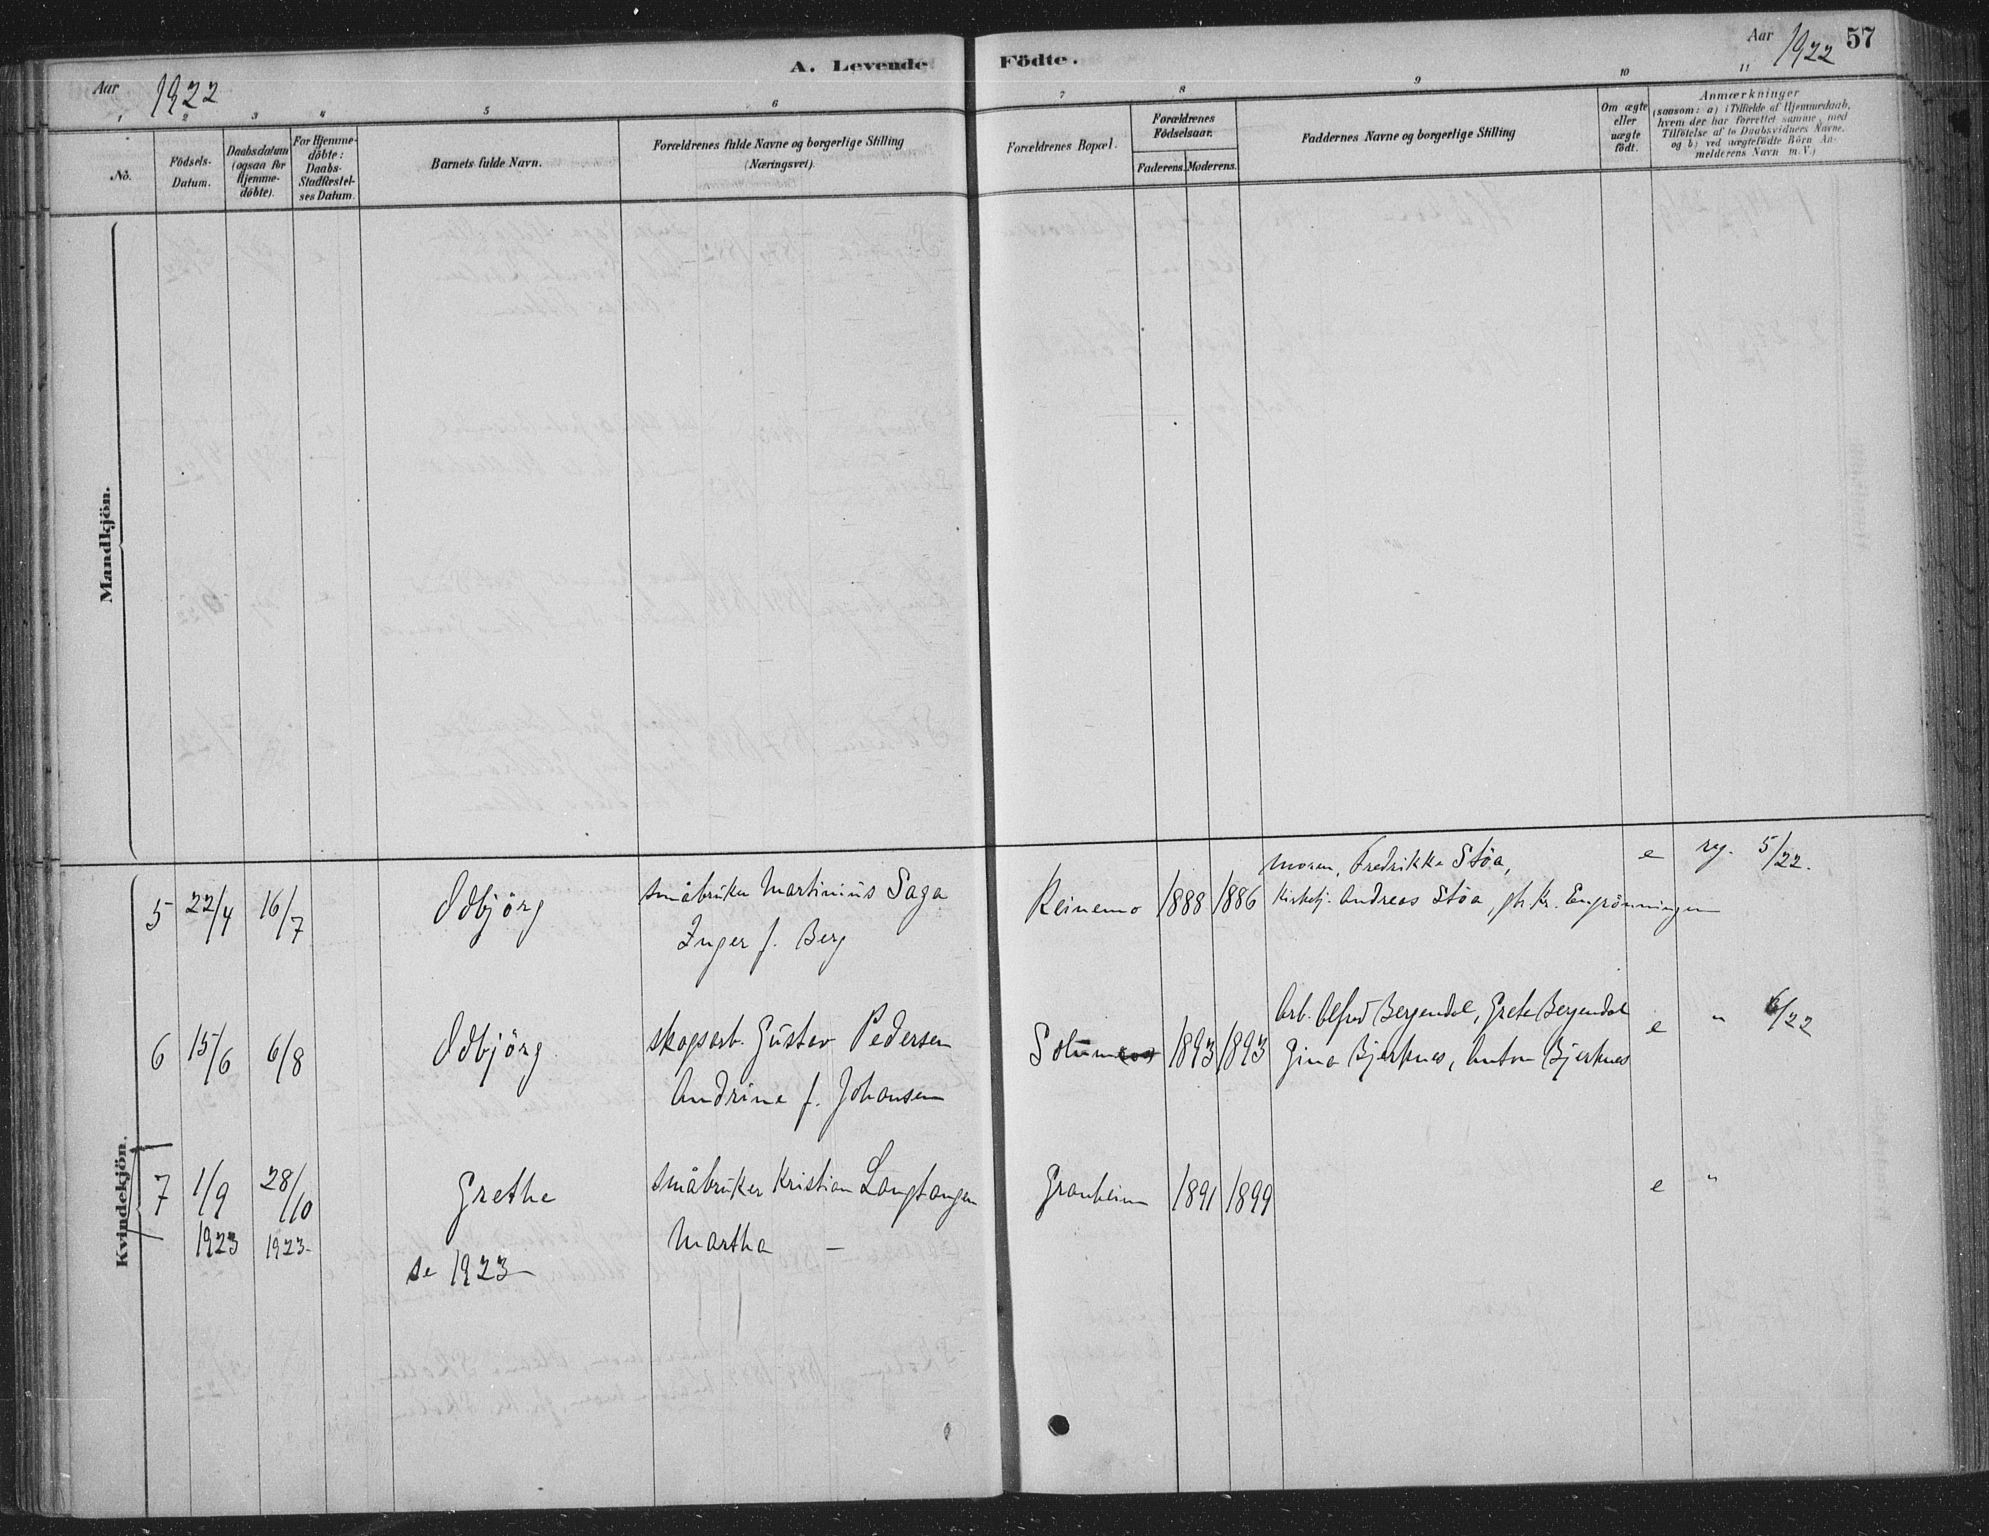 Aar 1922
A. Levende Födte.
Aar 1922 57
1 2 3 4 5 6 7 8 9 10 11
No.
Födsels-
Datum.
Daabsdatum
(ogsaa for
Hjemme-
döbte).
For Hjemme-
döbte:
Daabs-
Stadfæstel-
ses Datum.
Barnets fulde Navn.
Forældrenes fulde Navne og borgerlige Stilling
(Næringsvei).
Forældrenes Bopæl.
Forældrenes
Födselsaar.
Faderens. Moderens.
Faddernes Navne og borgerlige Stilling
Om ægte
eller
uægte
födt.
Anmærkninger
(saasom: a) i Tilfælde af Hjemmedaab,
hvem der har forrettet samme, med
Tilföielse af to Daabsvidners Navne.
og b) ved uægtefödte Börn An-
melderens Navn m. V.)
Mandkjön.
Kvindekjön.
5 22/4 16/7 Odbjörg småbruker Martinius Saga
Inger f. Berg
Reinemo 1888 1886
moren, Fredrikke Stöa,
Kirketj. Andreas Stöa, gb. Kr. Engrönningen
e reg. 5/22.
6 15/6 6/8 Odbjörg skogsarb. Gustav Pedersen
Andrine f. Johansen
1893 1893
Arb. Alfred Bergendal, Grete Bergendal
Gina Bjerknes, Anton Bjerknes
e " 6/22
7 1/9 28/10 Grethe småbruker Kristian Langtangen
1923 1923 Martha —
se 1923
Granheim 1891 1899 e "